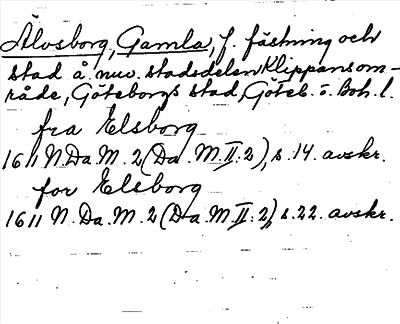 Älvsborg, Gamla, f. fästning och
stad å nuv. stadsdelen Klippans om-
råde, Göteborgs stad, Göteb. o. Boh. l.
fra Elsborg
1611 N.Da.M. 2 (Da. M. II: 2), s. 14. avskr.
for Elsborg
1611 N. Da. M. 2 (Da. M. II: 2), s. 22. avskr.